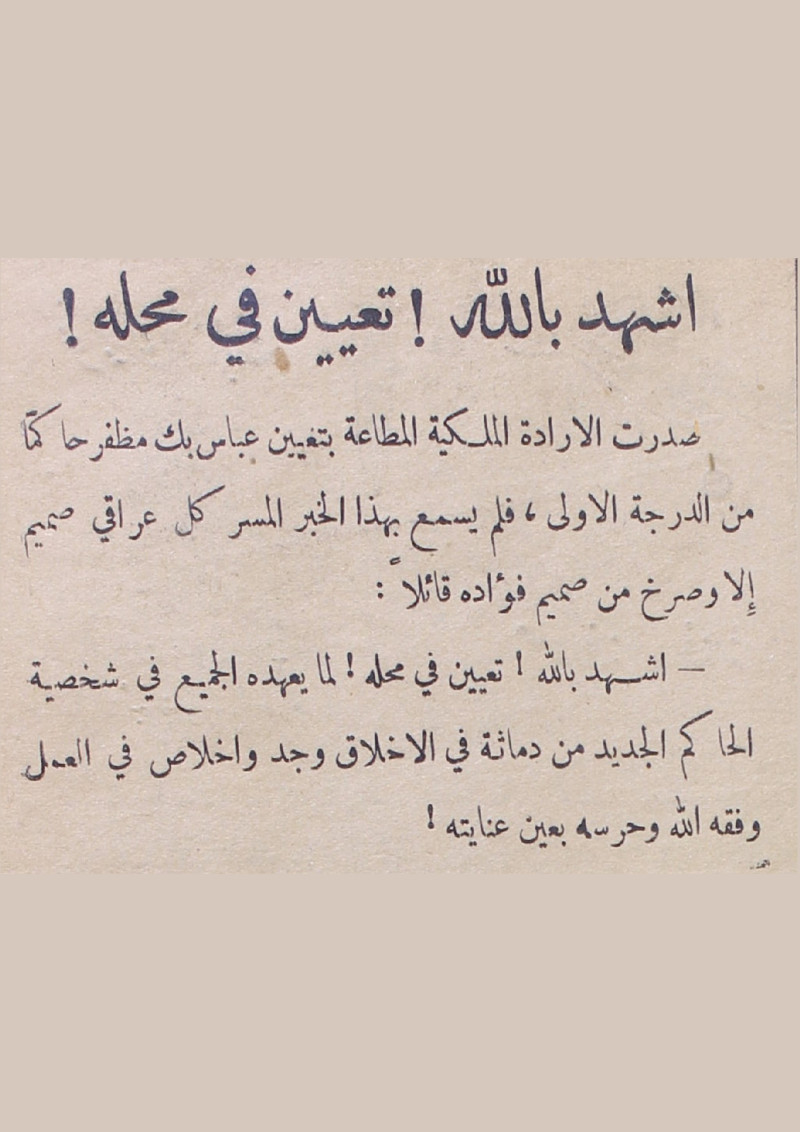 اشهد بالله ! تعيين في محله !
صدرت الارادة الملكية المطاعة بتعيين عباس بك مظفر حاكمًا
من الدرجة الاولى ، فلم يسمع بهذا الخبر المسر كل عراقي صميم
إلا وصرخ من صميم فؤاده قائلاً :
— اشهد بالله ! تعيين في محله ! لما يعهده الجميع في شخصية
الحاكم الجديد من دماثة في الاخلاق وجد واخلاص في العمل
وفقه الله وحرسه بعين عنايته !